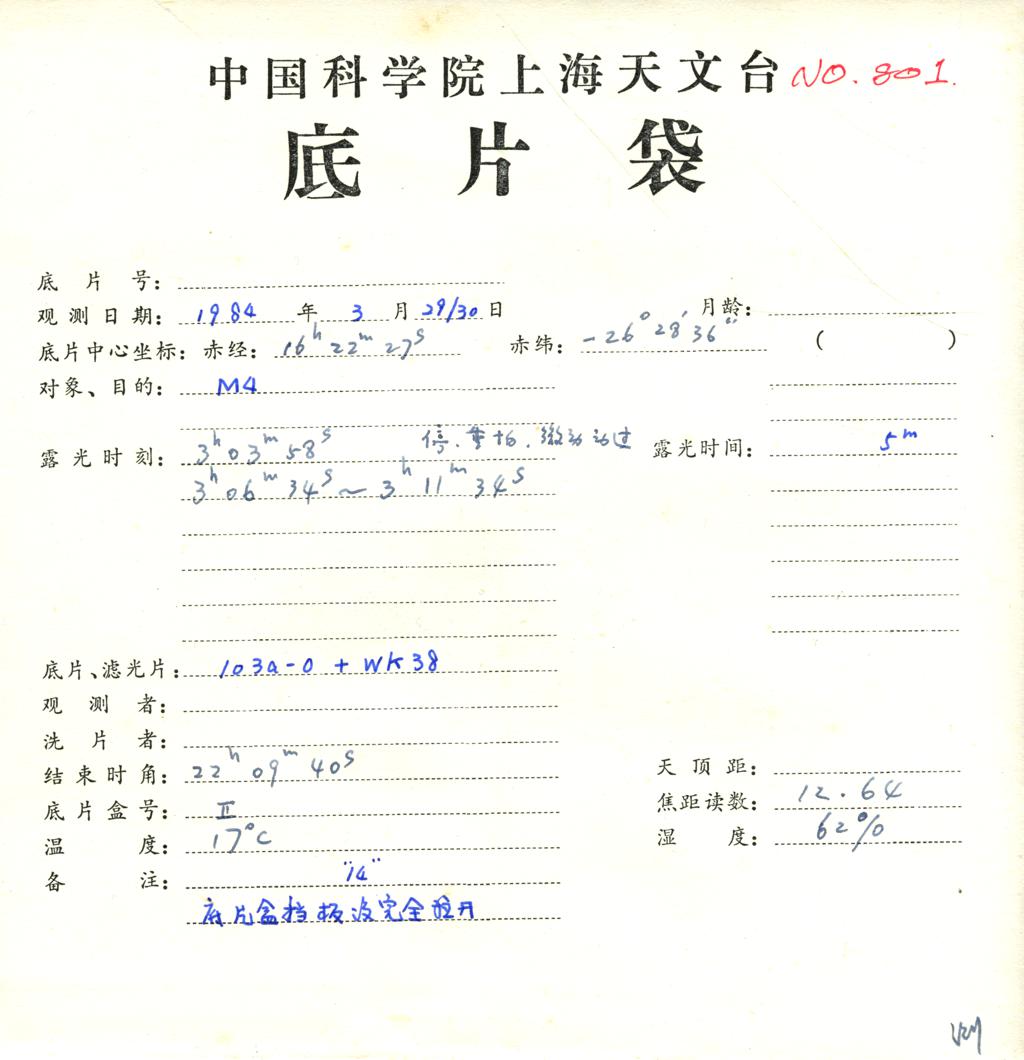 中国科学院上海天文台 NO. 801.
底片袋
底片号:
观测日期: 1984 年 3 月 29/30 日 月龄:
底片中心坐标: 赤经: 16h 22m 27s 赤纬: -26° 28′ 36″ ( )
对象、目的: M4
露光时刻: 3h 03m 58s 停.重拍.微动动过 露光时间: 5m
3h 06m 34s ~ 3h 11m 34s
底片、滤光片: 103a-O + WK38
观测者:
洗片者:
结束时角: 22h 09m 40s 天顶距:
底片盒号: II 焦距读数: 12.64
温度: 17°C 湿度: 62%
备注: "14"
底片盒挡板没完全拉开